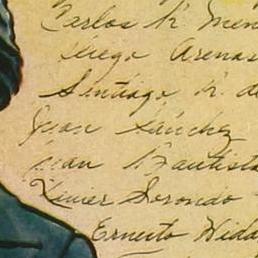 Carlos R. Men
Diego Arenas
Santiago R. de
Juan Sánchez
Juan Bautista
Xavier Sorondo
Ernesto Hida